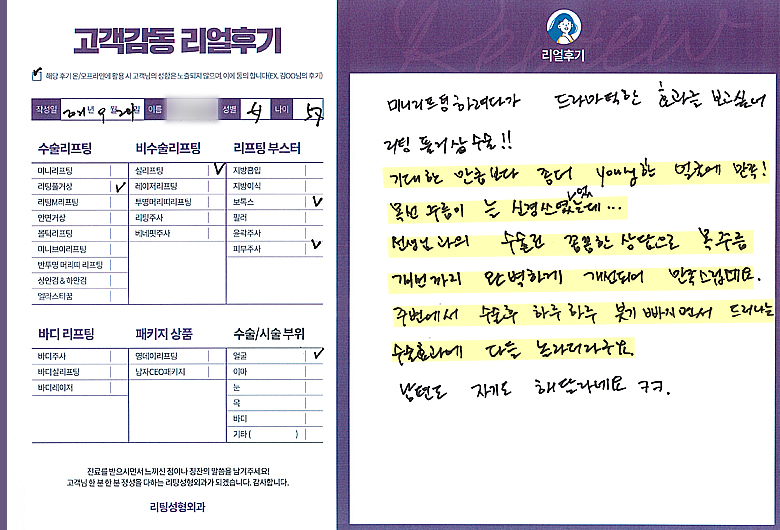 고객감동 리얼후기
해당 후기 온/오프라인에 활용 시 고객님의 성함은 노출되지 않으며, 이에 동의 합니다(EX. 김OO님의 후기)
작성일 년 9월 일 이름 성별 여 나이
수술리프팅
미니리프팅
리팅풀거상
리팅M리프팅
안면거상
볼턱리프팅
미니브이리프팅
반투명 머리띠 리프팅
상안검 & 하안검
엘라스티꿈
비수술리프팅
실리프팅
레이저리프팅
투명머리띠리프팅
리팅주사
베네핏주사
리프팅 부스터
지방흡입
지방이식
보톡스
필러
윤곽주사
피부주사
바디 리프팅
바디주사
바디실리프팅
바디레이저
패키지 상품
영데이리프팅
남자CEO패키지
수술/시술 부위
얼굴
이마
눈
목
바디
기타 ( )
진료를 받으시면서 느끼신 점이나 칭찬의 말씀을 남겨주세요!
고객님 한 분 한 분 정성을 다하는 리팅성형외과가 되겠습니다. 감사합니다.
리팅성형외과
Review
리얼후기
미니리프팅하려다가 드라마틱한 효과를 보고싶어
리팅 풀거상 수술!!
기대한 만큼보다 좀더 young한 얼굴에 만족!
목선 주름이 늘 신경쓰였었는데...
선생님과의 수술전 꼼꼼한 상담으로 목주름
개선까지 완벽하게 개선되어 만족스럽네요.
주변에서 수술후 하루하루 붓기 빠지면서 드러나는
수술효과에 다들 놀라더라구요.
남편도 자기도 해달라네요 ㅋㅋ.